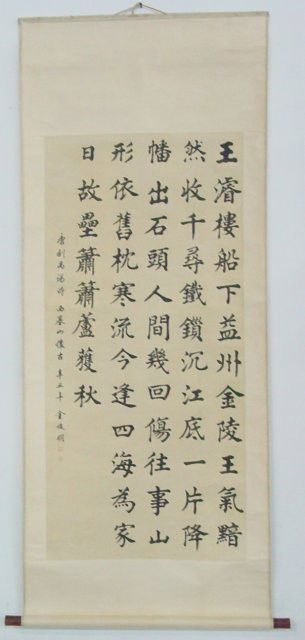 王濬樓船下益州金陵王氣黯
然收千尋鐵鎖沉江底一片降
幡出石頭人間幾回傷往事山
形依舊枕寒流今逢四海為家
日故壘簫簫蘆獲秋
唐劉禹錫詩 西塞山懷古 辛丑年 金